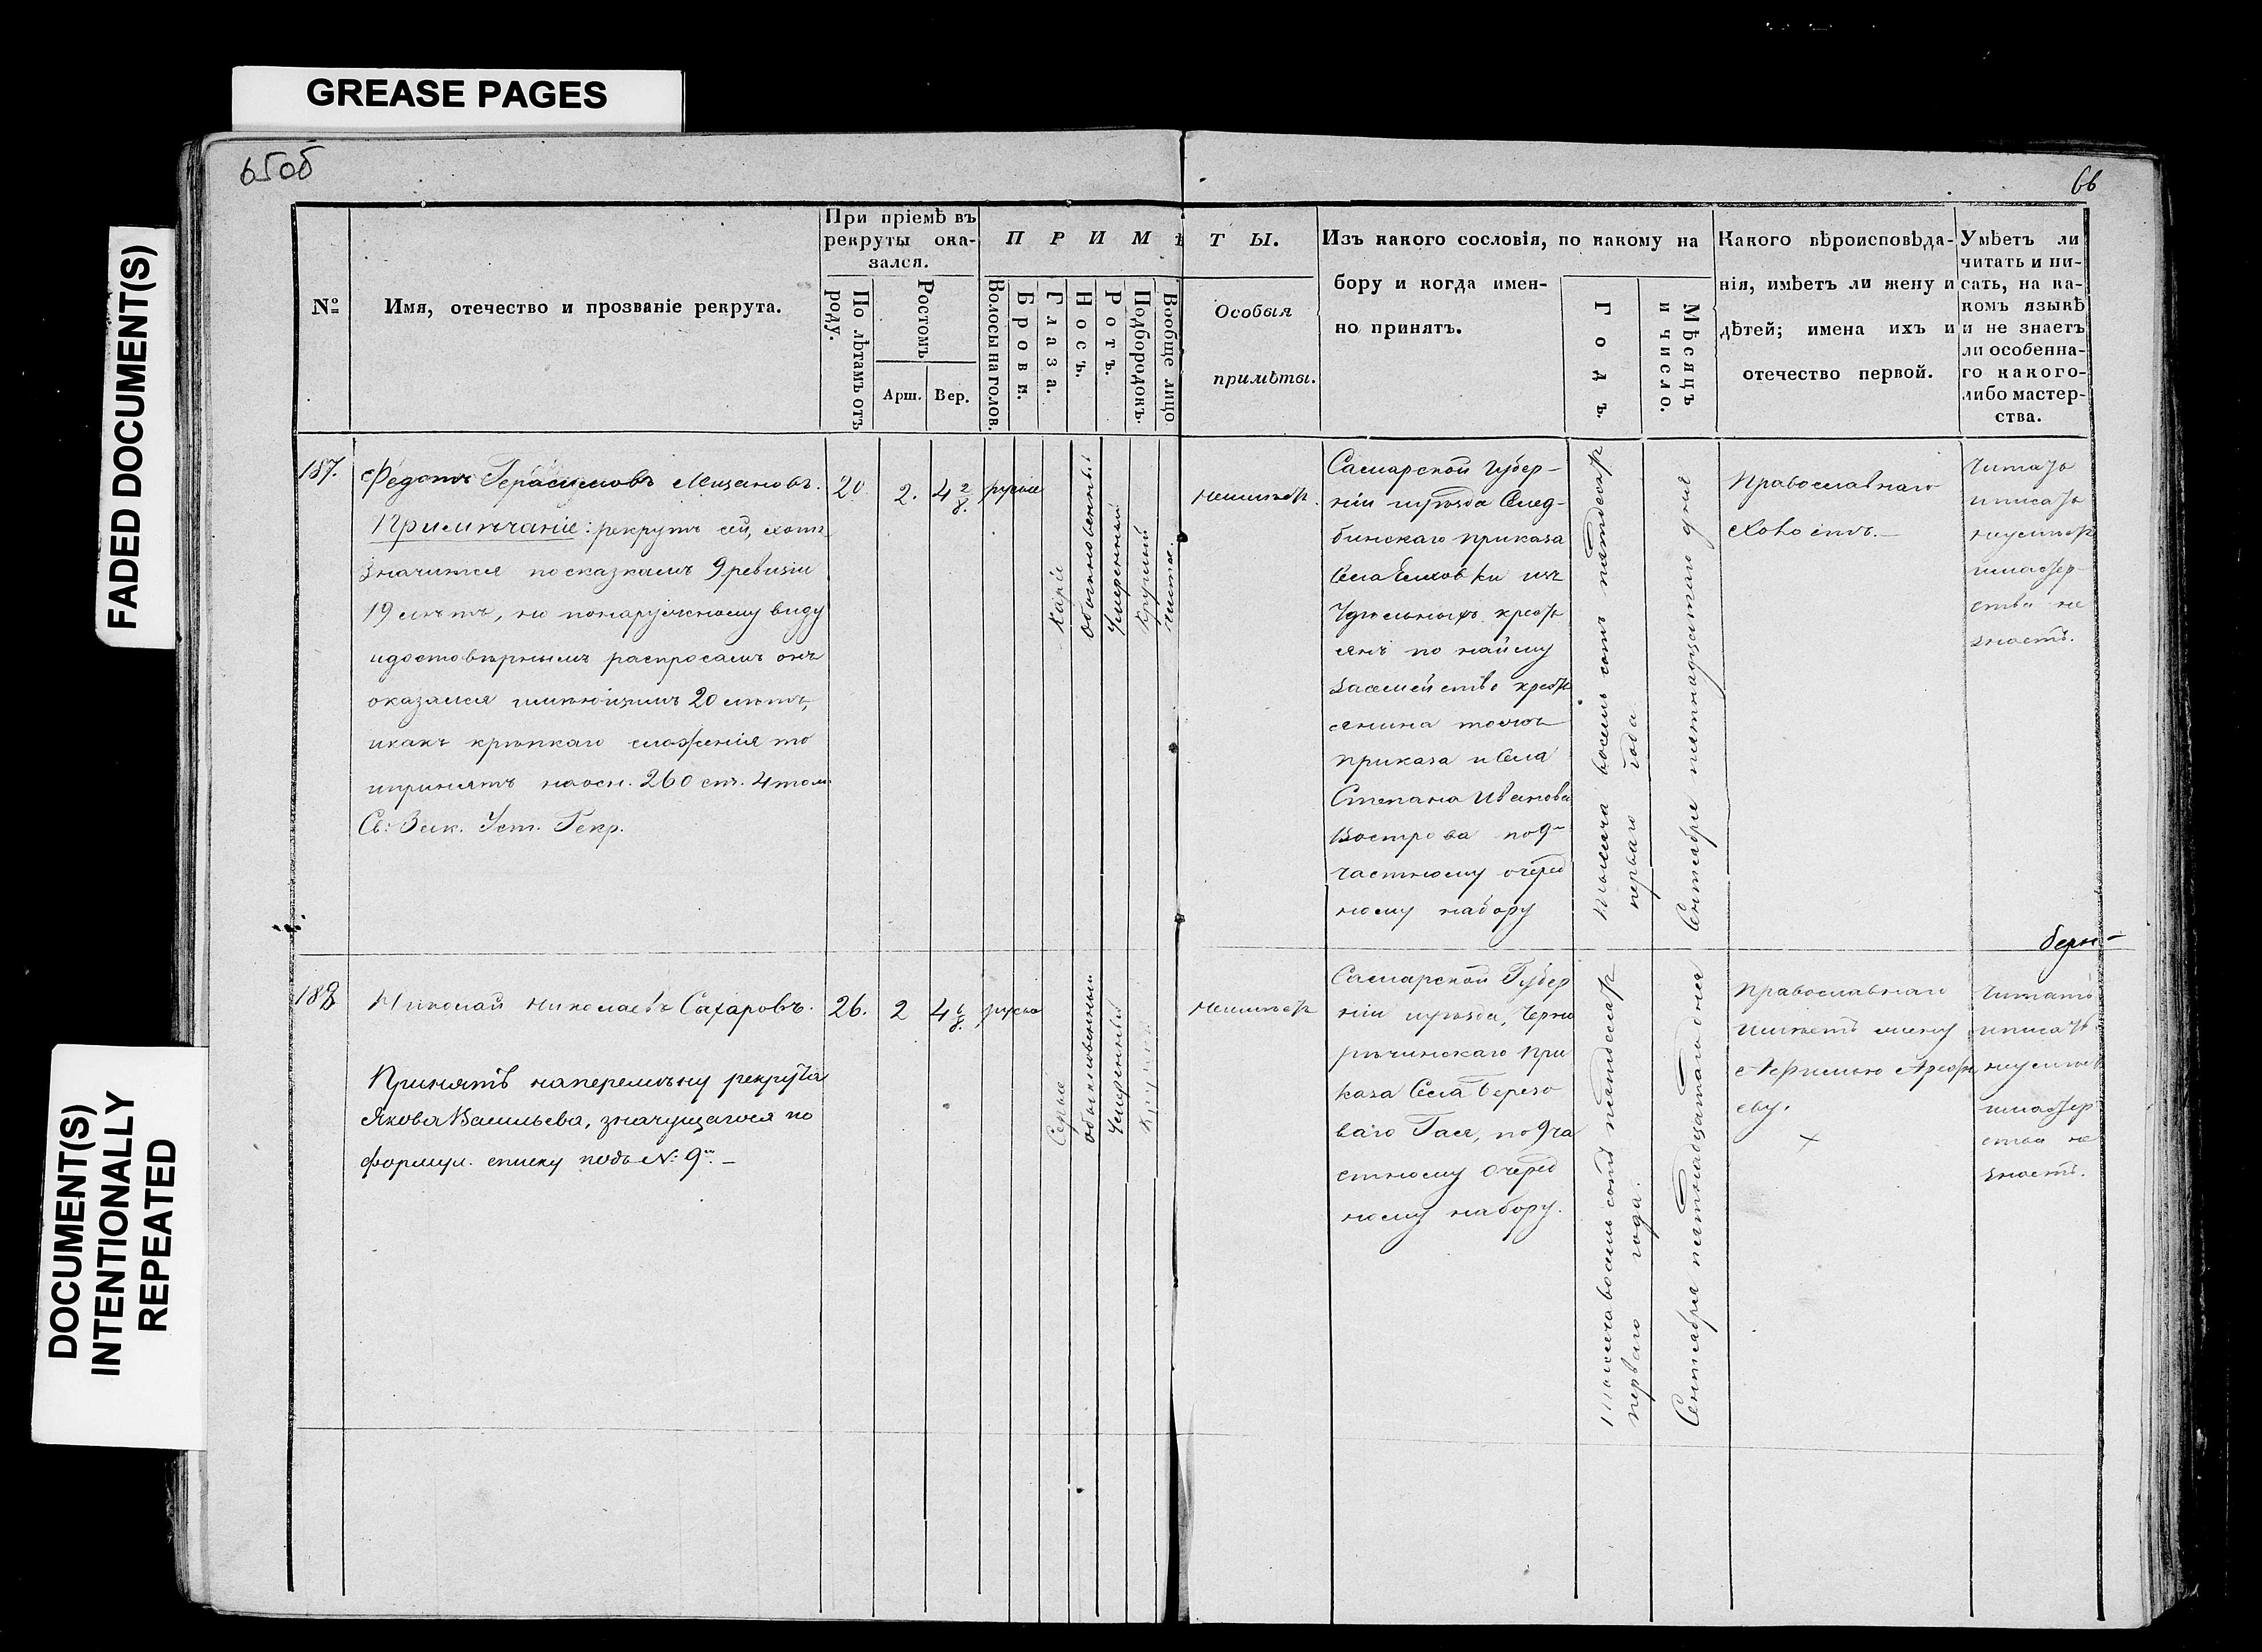 GREASE PAGES
FADED DOCUMENT(S)
DOCUMENT(S)
INTENTIONALLY
REPEATED
65об
66
№
Имя, отечество и прозваніе рекрута.
При пріемѣ въ
рекруты ока-
зался.
По лѣтамъ отъ
роду.
Ростомъ
Арш.
Вер.
ПРИМѢТЫ.
Волосы на голов.
Брови.
Глаза.
Носъ.
Ротъ.
Подбородокъ.
Вообще лицо
Особыя
примѣты.
Изъ какого сословія, по какому на
бору и когда имен-
но принятъ.
Годъ.
Мѣсяцъ
и число.
Какого вѣроисповѣда-
нія, имѣетъ ли жену и
дѣтей; имена ихъ и
отечество первой.
Умѣетъ ли
читать и пи-
сать, на ка-
комъ языкѣ
и не знаетъ
ли особенна-
го какого-
либо мастер-
ства.
187.
Федотъ Герасимовъ Мизановъ.
Примѣчаніе: рекрутъ сей, хотя
значится по сказкамъ 9 ревизіи
19 лѣтъ, но по наружному виду
и достовѣрнымъ распросамъ онъ
оказался имѣющимъ 20 лѣтъ,
и какъ крѣпкаго сложенія то
и принятъ на осн. 260 ст. 4 том.
Св: Зак. Уст. Рекр.
20
2.
4 2/8.
русые
Каріе
обыкновенный
Умеренный
Круглый
чистое.
неимѣет.
Самарской Губер-
ніи и уѣзда
бинскаго приказа
Села из
Удельныхъ кресть
янъ по найму
за семейство кресть
янина того
приказа и Села
Степана Иванова
Вострова по 9
частному очеред
ному набору
Тысяча восемь сотъ пятдесят
перваго года
Сентября пятнадцатаго дня
Православнаго
холостъ.—
Читать
и писать
неумѣет
и мастер-
ства не
знаетъ.
188
Николай Николаевъ Сахаровъ.
Принятъ на перемѣну рекрута
Якова Васильева, значущагося по
формул. списку подъ № 9
26.
2
4 6/8.
русые
Серые
обыкновенный
Умеренный
Круглый
неимѣет
Самарской Губер
ніи и уѣзда, Черно
рѣчинскаго При
каза Села Березо
ваго Гая, по 9 ча
стному Очеред
ному набору.
Тысяча восемь сотъ пятдесят
перваго года.
Сентября пятнадцатаго дня
Православнаго
имѣетъ жену
еву.
Читать
и писать
неумѣет
и мастер
ства не
знаетъ.